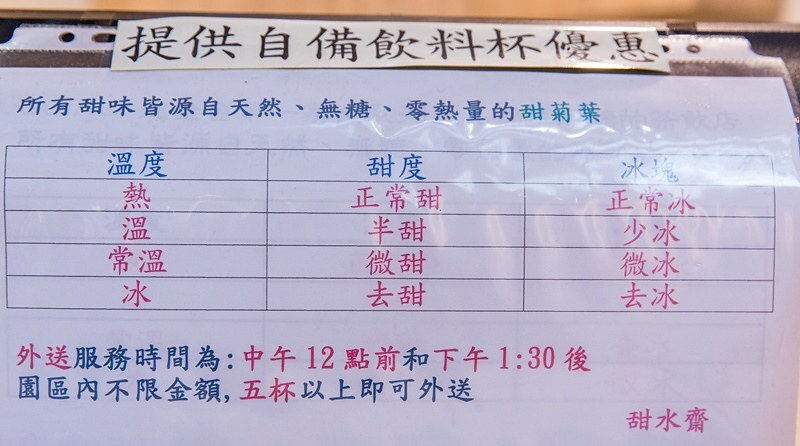 提供自備飲料杯優惠
所有甜味皆源自天然、無糖、零熱量的甜菊葉
溫度 甜度 冰塊
熱 正常甜 正常冰
溫 半甜 少冰
常溫 微甜 微冰
冰 去甜 去冰
外送服務時間為:中午12點前和下午1:30後
園區內不限金額,五杯以上即可外送
甜水齋